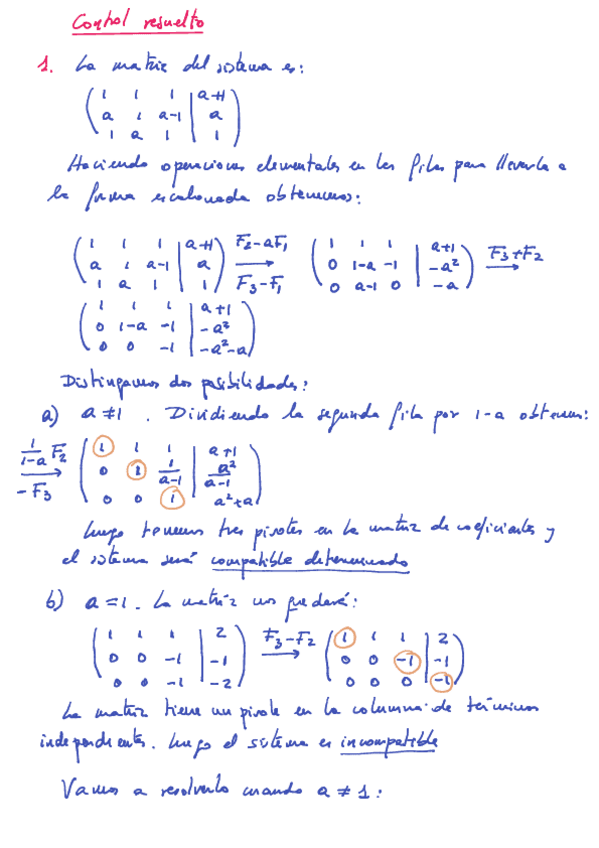 Control resuelto
1. La matriz del sistema es:
( 1 1 1 | a+1
a 1 a-1 | a
1 a 1 | 1 )
Haciendo operaciones elementales en las filas para llevarla a
la forma escalonada obtenemos:
( 1 1 1 | a+1
a 1 a-1 | a
1 a 1 | 1 ) F2-aF1 → F3-F1 ( 1 1 1 | a+1
0 1-a -1 | -a²
0 a-1 0 | -a ) F3+F2 →
( 1 1 1 | a+1
0 1-a -1 | -a²
0 0 -1 | -a²-a )
Distingamos dos posibilidades:
a) a ≠ 1 . Dividiendo la segunda fila por 1-a obtenemos:
1/1-a F2 → -F3 ( 1 1 1 | a+1
0 1 1/a-1 | a²/a-1
0 0 1 | a²+a )
Luego tenemos tres pivotes en la matriz de coeficientes y
el sistema será compatible determinado
b) a = 1 . La matriz nos quedará:
( 1 1 1 | 2
0 0 -1 | -1
0 0 -1 | -2 ) F3-F2 → ( 1 1 1 | 2
0 0 -1 | -1
0 0 0 | -1 )
La matriz tiene un pivote en la columna de términos
independientes. Luego el sistema es incompatible
Vamos a resolverlo cuando a ≠ 1 :